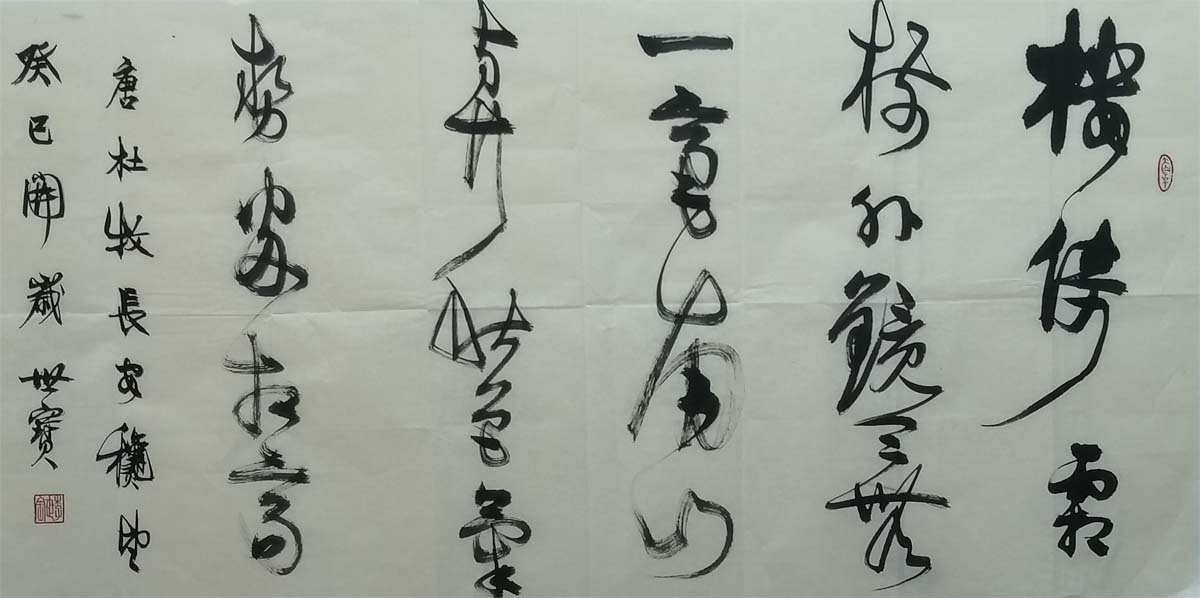 樓倚霜
樹外鏡天無
一毫南山
與秋色氣
勢兩相高
唐杜牧長安穐望
癸巳開歲 世寶